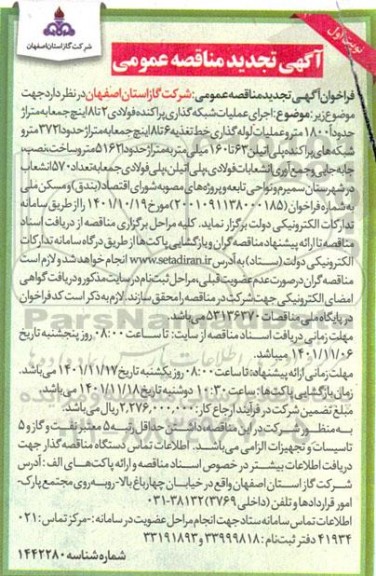 شرکت گاز استان اصفهان
نوبت اول
آگهی تجدید مناقصه عمومی
فراخوان آگهی تجدید مناقصه عمومی: شرکت گاز استان اصفهان در نظر دارد جهت
موضوع زیر: موضوع: اجرای عملیات شبکه گذاری پراکنده فولادی ۲ تا ۸ اینچ جمعا به متراژ
حدوداً ۱۸۰۰ متر و عملیات لوله گذاری خط تغذیه ۶ تا ۸ اینچ جمعا به متراژ حدوداً ۳۷۲ متر و
شبکه های پراکنده پلی اتیلن ۶۳ تا ۱۶۰ میلی متر به متراژ حدوداً ۵۱۶۲ متر و ساخت، نصب،
جابه جایی و جمع آوری انشعابات فولادی، پلی اتیلن، پلی فولادی جمعا به تعداد ۵۷۰ انشعاب
در شهرستان سمیرم و نواحی تابعه و پروژه های مصوبه شورای اقتصاد (بند ق) و مسکن ملی
به شماره فراخوان (۲۰۰۱۰۹۱۱۳۸۰۰۰۱۸۵) مورخ ۱۴۰۱/۱۰/۱۹ را از طریق سامانه
تدارکات الکترونیکی دولت برگزار نماید. کلیه مراحل برگزاری مناقصه از دریافت اسناد
مناقصه تا ارائه پیشنهاد مناقصه گران و بازگشایی پاکت ها از طریق درگاه سامانه تدارکات
الکترونیکی دولت (ستاد) به آدرس www.setadiran.ir انجام خواهد شد و لازم است
مناقصه گران در صورت عدم عضویت قبلی، مراحل ثبت نام در سایت مذکور و دریافت گواهی
امضای الکترونیکی جهت شرکت در مناقصه را محقق سازند. لازم به ذکر است کد فراخوان
در پایگاه ملی مناقصات ۵۳۱۳۶۳۷۰ می باشد.
مهلت زمانی دریافت اسناد مناقصه از سایت: تا ساعت ۰۸:۰۰ روز پنجشنبه تاریخ
۱۴۰۱/۱۱/۰۶ میباشد.
مهلت زمانی ارائه پیشنهاد: تا ساعت ۰۸:۰۰ روز یکشنبه تاریخ ۱۴۰۱/۱۱/۱۷ می باشد.
زمان بازگشایی پاکت ها: ساعت ۱۰:۳۰ دوشنبه تاریخ ۱۴۰۱/۱۱/۱۸ می باشد.
مبلغ تضمین شرکت در فرآیند ارجاع کار: ۲,۲۷۶,۰۰۰,۰۰۰ ریال می باشد.
به منظور شرکت در این مناقصه داشتن حداقل رتبه ۵ معتبر نفت و گاز و ۵
تاسیسات و تجهیزات الزامی می باشد. اطلاعات تماس دستگاه مناقصه گذار جهت
دریافت اطلاعات بیشتر در خصوص اسناد مناقصه و ارائه پاکت های الف: آدرس
شرکت گاز استان اصفهان واقع در خیابان چهارباغ بالا-روبه روی مجتمع پارک-
امور قراردادها و تلفن (داخلی ۳۷۶۹) ۳۸۱۳۲-۰۳۱
اطلاعات تماس سامانه ستاد جهت انجام مراحل عضویت در سامانه:- مرکز تماس: ۰۲۱
۴۱۹۳۴ دفتر ثبت نام: ۳۳۹۹۹۸۱۸ و ۳۳۱۹۱۸۹۳
شماره شناسه ۱۴۴۲۲۸۰